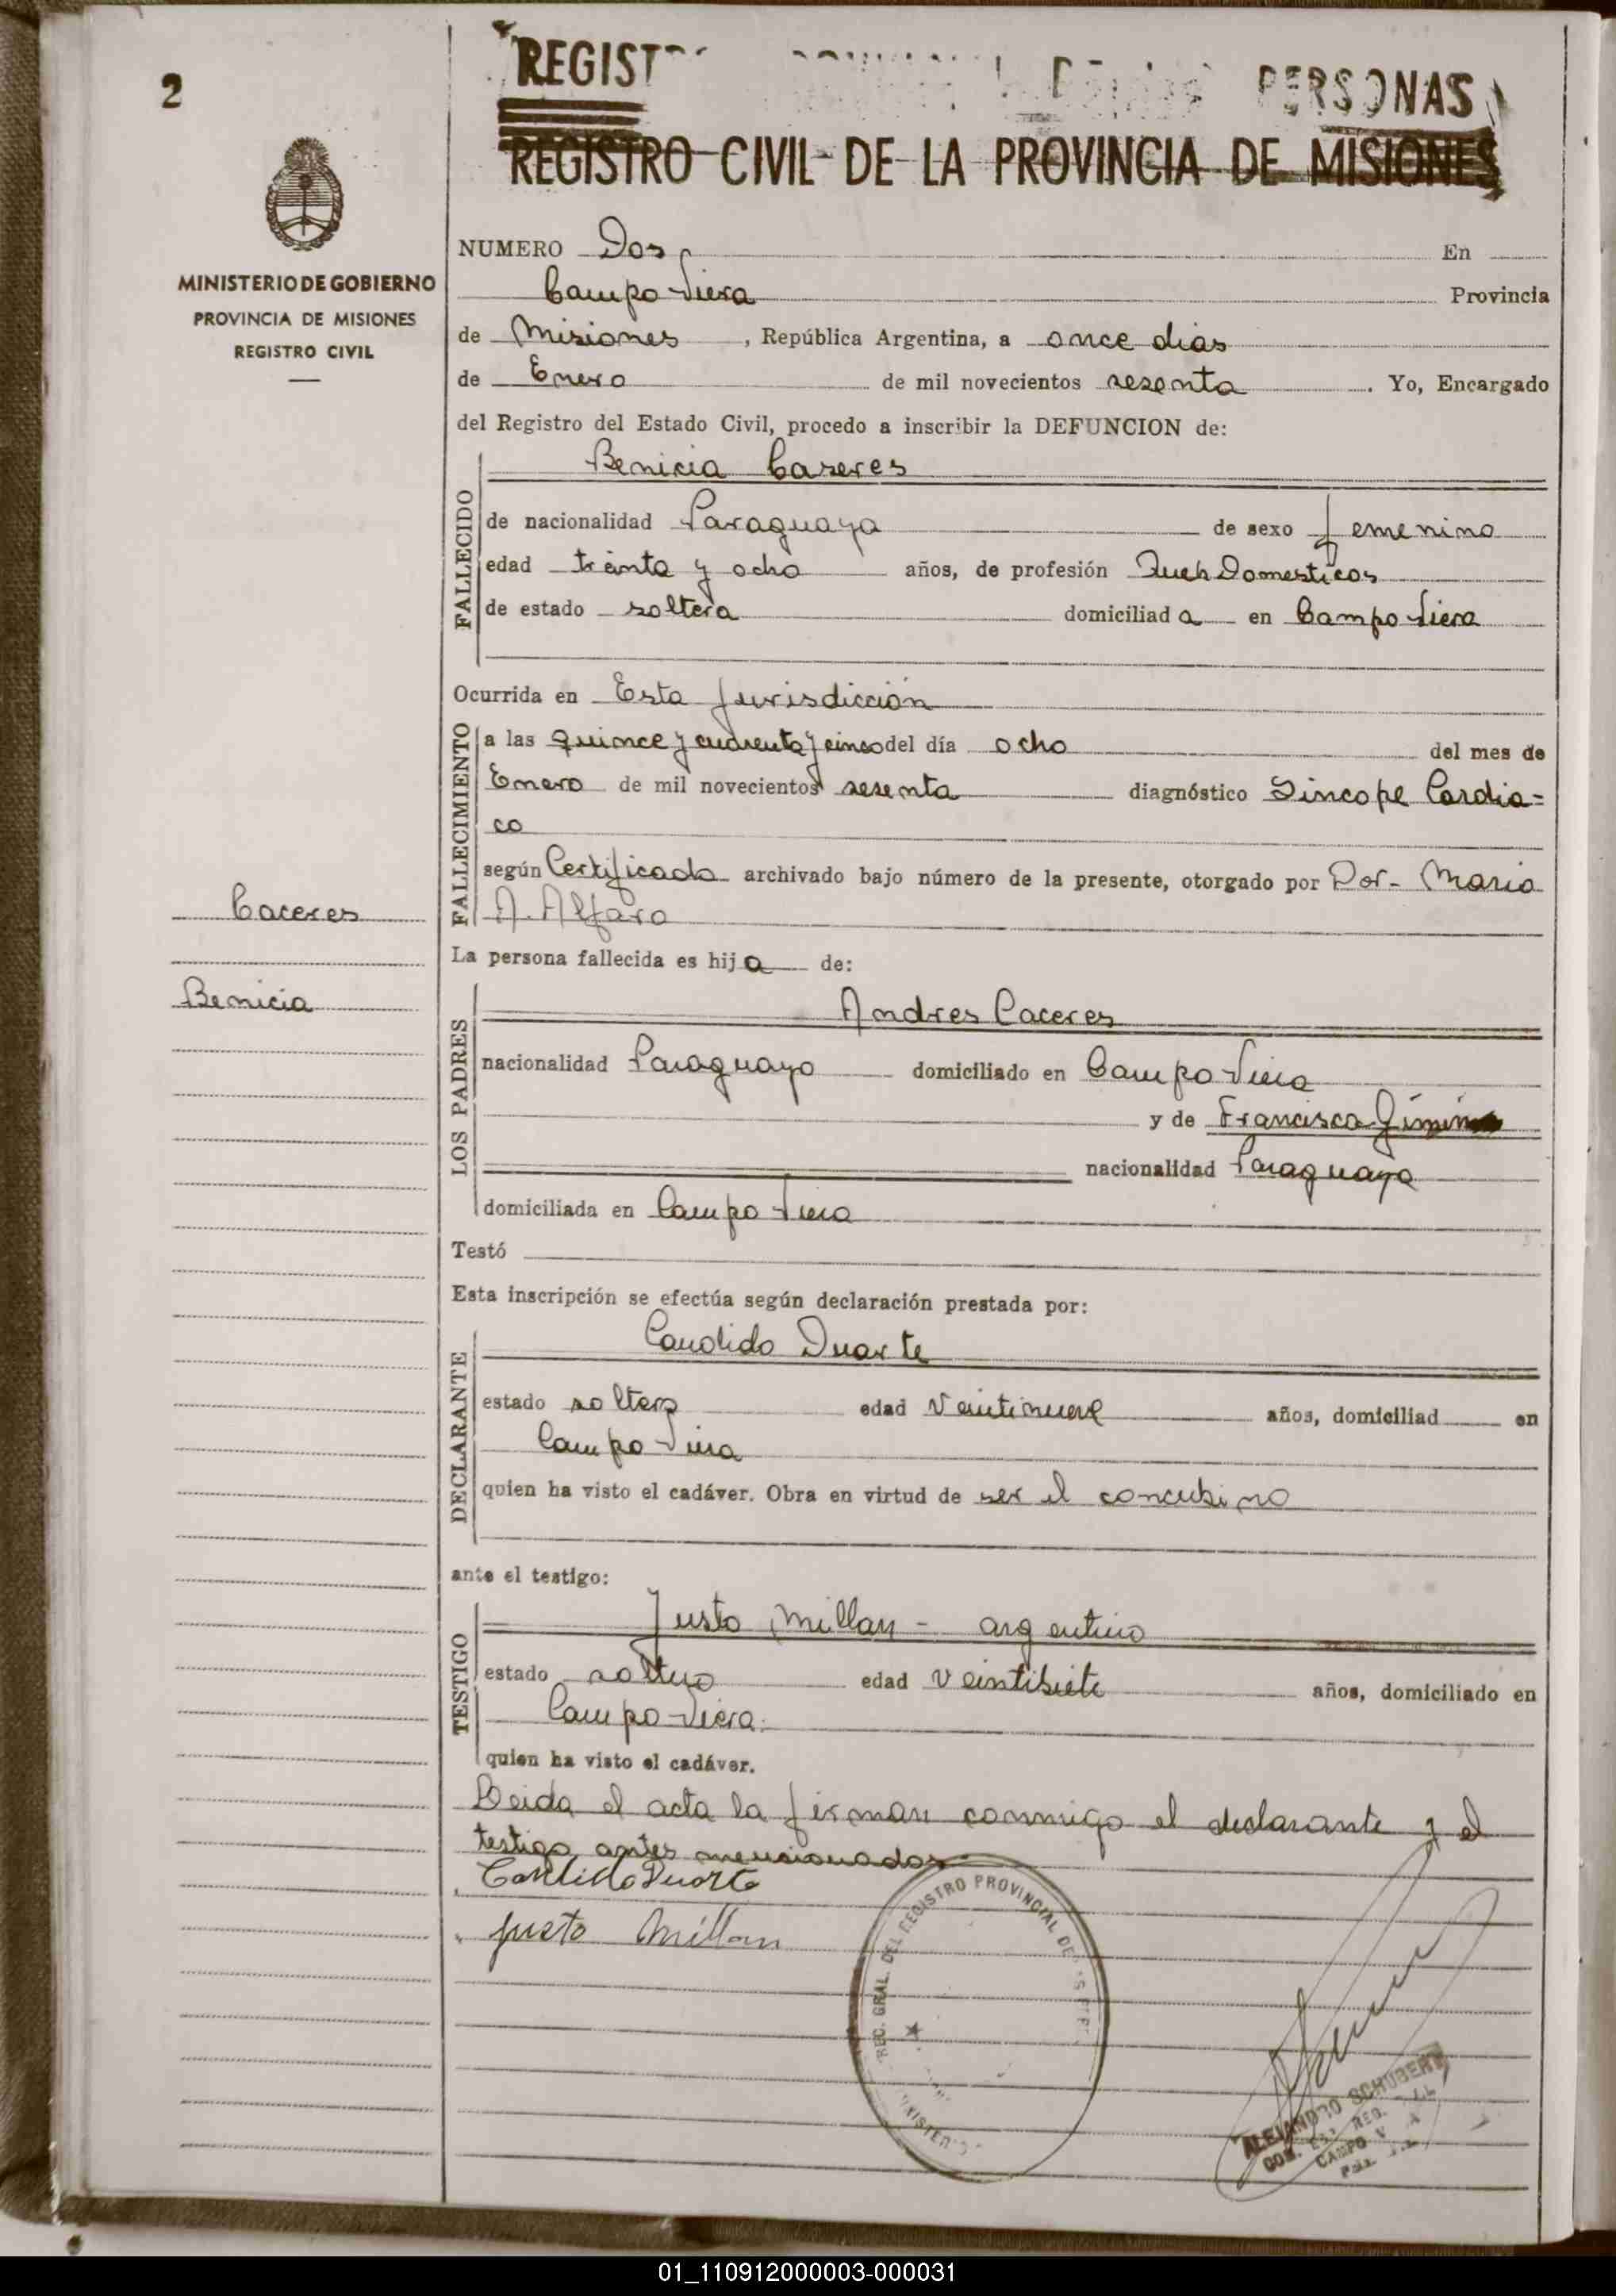 2
REGIST PERSONAS
REGISTRO CIVIL DE LA PROVINCIA DE MISIONES
MINISTERIO DE GOBIERNO
PROVINCIA DE MISIONES
REGISTRO CIVIL
NUMERO Dos En
Campo Viera Provincia
de Misiones, República Argentina, a once dias
de Enero de mil novecientos sesenta. Yo, Encargado
del Registro del Estado Civil, procedo a inscribir la DEFUNCION de:
FALLECIDO
Benicia Caseres
de nacionalidad Paraguaya de sexo femenino
edad treinta y ocho años, de profesión Domesticos
de estado soltera domiciliada en Campo Viera
Ocurrida en Esta Jurisdicción
FALLECIMIENTO
a las quince y cuarenta y cinco del día ocho del mes de
Enero de mil novecientos sesenta diagnóstico Sincope Cardia=
co
según Certificado archivado bajo número de la presente, otorgado por Dor- Mario
A. Alfaro
Caceres
Benicia
La persona fallecida es hija de:
LOS PADRES
Andres Caceres
nacionalidad Paraguayo domiciliado en Campo Viera
y de Francisca
nacionalidad Paraguaya
domiciliada en Campo Viera
Testó
Esta inscripción se efectúa según declaración prestada por:
DECLARANTE
Candido Duarte
estado soltero edad Veintinueve años, domiciliad en
Campo Viera
quien ha visto el cadáver. Obra en virtud de ser el concubino
ante el testigo:
TESTIGO
Justo Millan - argentino
estado soltero edad veintisiete años, domiciliado en
Campo Viera.
quien ha visto el cadáver.
Leida el acta la firman conmigo el declarante y el
testigo antes mencionados.
Candido Duarte
Justo Millan
REC. GRAL. DEL REGISTRO PROVINCIAL DE
ALEJANDRO SCHUBERT
REG.
CAMPO
01_110912000003-000031